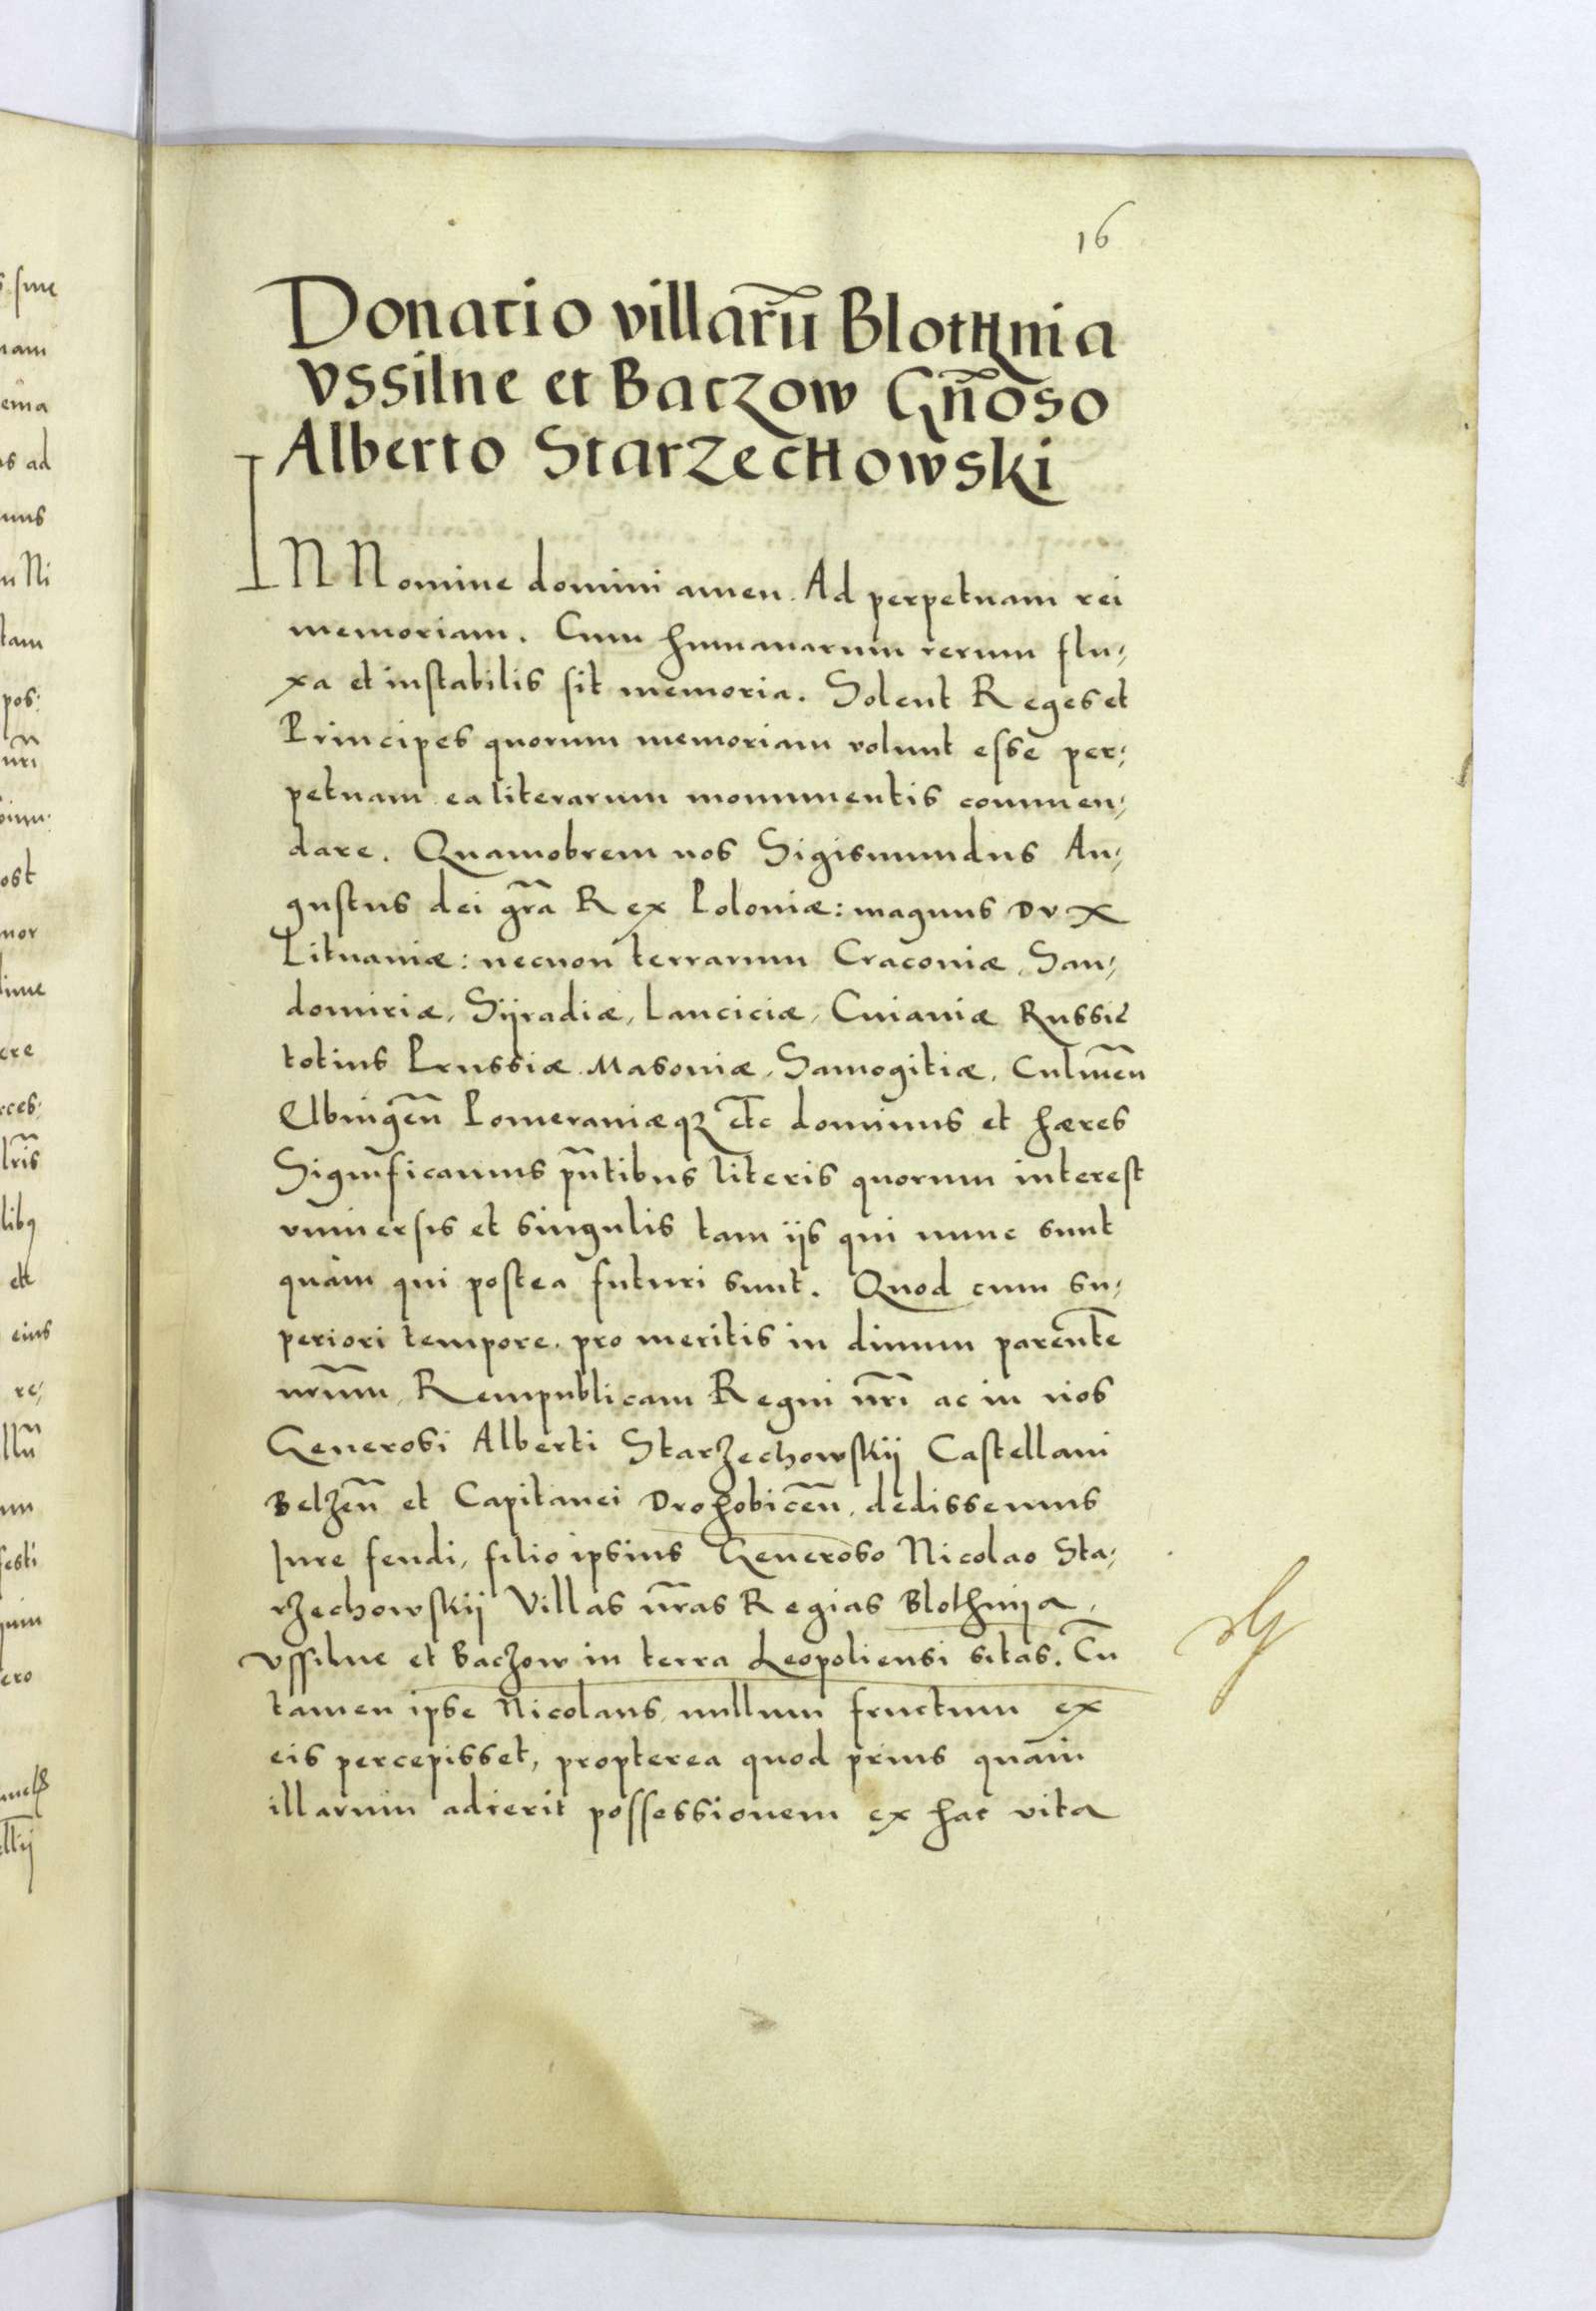 16
Donatio villarū Blothnia
vssilne et Baczow Gñoso
Alberto Starzechowski
IN Nomine domini amen. Ad perpetuam rei
memoriam. Cum humanarum rerum flu,
xa et instabilis sit memoria. Solent Reges et
Principes quorum memoriam volunt esse per,
petuam ea literarum monumentis commen,
dare. Quamobrem nos Sigismundus Au,
gustus dei gr̃a Rex Poloniæ: magnus Dvx
Lituaniæ: necnon terrarum Cracoviæ, San,
domiriæ, Sijradiæ, Lanciciæ, Cuiaviæ Russię
totius Prussiæ Masoviæ, Samogitiæ, Culmeñ
Elbingeñ Pomeraniæqꝫ etc̃ dominus et hæres
Significamus pñtibus literis quorum interest
vniversis et singulis tam ijs qui nunc sunt
quàm qui postea futuri sunt. Quod cum su,
periori tempore, pro meritis in diuum parent̃e
nrũm, Rempublicam Regni nr̃i ac in nos
Generosi Alberti Starzechowskij Castellani
Belzeñ et Capitanei Drohobiceñ, dedissemus
Jure feudi, filio ipsius Generoso Nicolao Sta,
rzechowskij Villas nr̃as Regias Blothnija,
vssilne et Baczow in terra Leopoliensi sitas. Cũ
tamen ipse Nicolaus, nullum fructum ex
eis percepisset, propterea quod prius quàm
illarum adierit possessionem ex hac vita